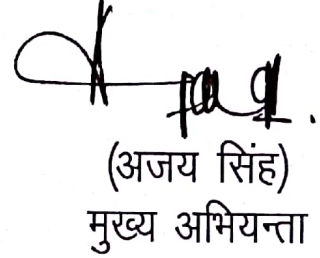 (अजय सिंह)
मुख्य अभियन्ता